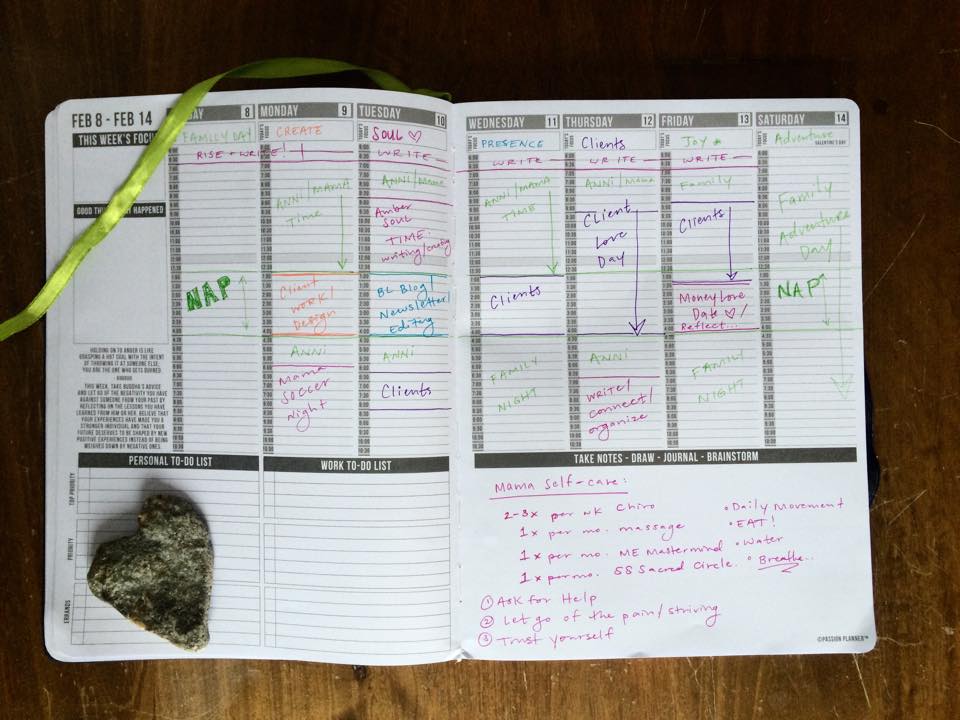 FEB 8 - FEB 14
THIS WEEK'S FOCUS
GOOD THINGS THAT HAPPENED
HOLDING ON TO ANGER IS LIKE
GRASPING A HOT COAL WITH THE INTENT
OF THROWING IT AT SOMEONE ELSE;
YOU ARE THE ONE WHO GETS BURNED.
- BUDDHA
THIS WEEK, TAKE BUDDHA'S ADVICE
AND LET GO OF THE NEGATIVITY YOU HAVE
AGAINST SOMEONE FROM YOUR PAST BY
REFLECTING ON THE LESSONS YOU HAVE
LEARNED FROM HIM OR HER. BELIEVE THAT
YOUR EXPERIENCES HAVE MADE YOU A
STRONGER INDIVIDUAL AND THAT YOUR
FUTURE DESERVES TO BE SHAPED BY NEW
POSITIVE EXPERIENCES INSTEAD OF BEING
WEIGHED DOWN BY NEGATIVE ONES.
DAY 8
FAMILY DAY
RISE + WRITE!
NAP
MONDAY 9
TODAY'S FOCUS
CREATE
ANNI/MAMA
Time
Client
work/
Design
ANNI
Mama
Soccer
Night
TUESDAY 10
TODAY'S FOCUS
SOUL ♡
WRITE
ANNI/Mama
Amber
SOUL
TIME:
writing/creating
BL Blog/
Newsletter/
Editing
ANNI
Clients
WEDNESDAY 11
TODAY'S FOCUS
PRESENCE
WRITE
ANNI/MAMA
TIME
Clients
FAMILY
NIGHT
THURSDAY 12
TODAY'S FOCUS
Clients
WRITE
ANNI/Mama
Client
Love
Day
ANNI
WRITE/
connect/
organize
FRIDAY 13
TODAY'S FOCUS
Joy
WRITE
Family
Clients
Money Love
Date ♡/
Reflect...
FAMILY
NIGHT
SATURDAY 14
TODAY'S FOCUS
Adventure
VALENTINE'S DAY
Family
Adventure
Day
NAP
PERSONAL TO-DO LIST
WORK TO-DO LIST
TOP PRIORITY
PRIORITY
ERRANDS
TAKE NOTES - DRAW - JOURNAL - BRAINSTORM
Mama self-care:
2-3x per wk Chiro
1x per mo. massage
1x per mo. ME Mastermind
1x per mo. SS Sacred Circle..
• Daily Movement
• EAT!
• Water
• Breathe..
① Ask for Help
② Let go of the pain/striving
③ Trust yourself
©PASSION PLANNER™